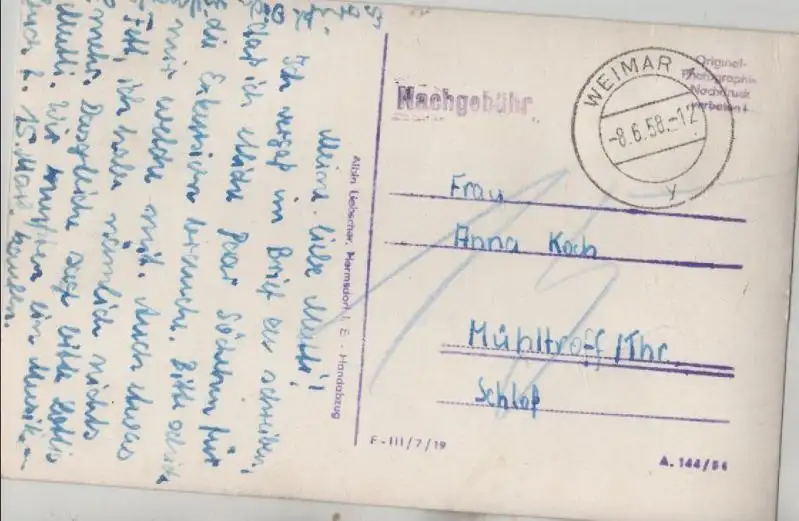 Meine liebe Mutti!
Ich vergaß im Brief zu schreiben,
daß ich etliche Paar Söckchen für
die Exkursion brauche. Bitte
mir welche mit. Auch etwas
Fett, ich habe nämlich nichts
mehr. Desgleichen bitte
Mutti. Wir mußten ein Musik-
buch f. 15.- Mark kaufen.
Albin Liebscher, Hermsdorf i. E. - Handabzug
Nachgebühr
WEIMAR
-8.6.58.-12
y
Original-
Photographie
Nachdruck
verboten!
Frau
Anna Koch
Mühltroff/Thr.
Schloß
F-III/7/19
A. 144/54